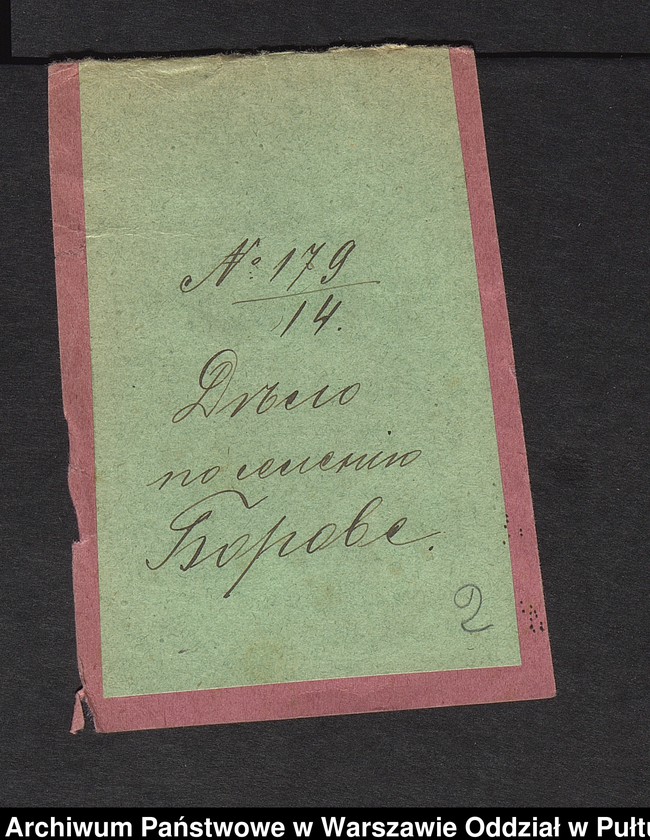 № 179
14.
Дѣло
по имѣнію
Борове.
2
Archiwum Państwowe w Warszawie Oddział w Pułtu